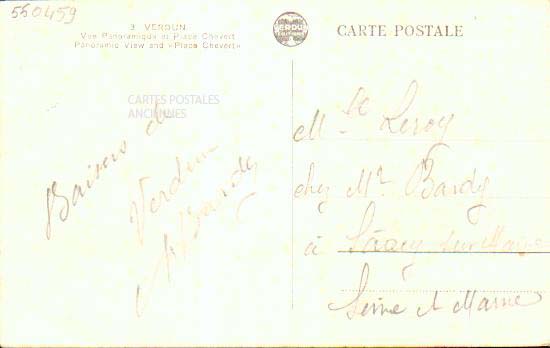 550459
3 VERDUN
Vue Panoramique et Place Chevert
Panoramic View and «Place Chevert»
VERDUN
CARTE POSTALE
CARTES POSTALES
ANCIENNES
Baisers de
Verdun
Bardy
Mlle Leroy
chez Mr Bardy
à Saacy sur Marne
Seine et Marne